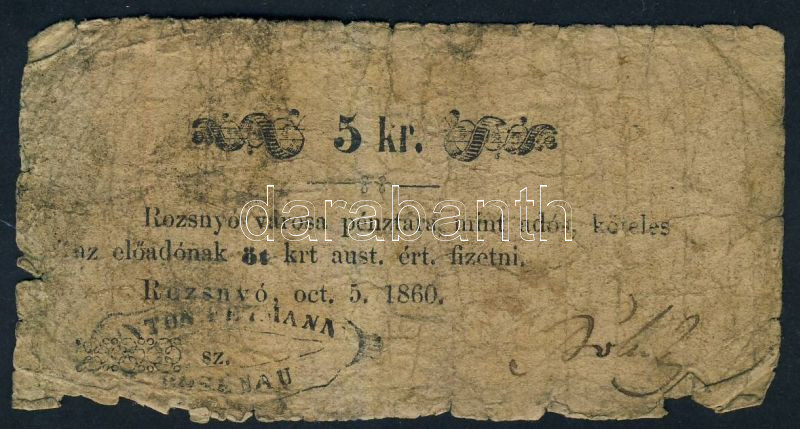 5 kr.
Rozsnyó városa pénztára, mint adós, köteles
az előadónak 5t krt aust. ért. fizetni.
Rozsnyó, oct. 5. 1860.
sz.
ROSENAU
darabanth